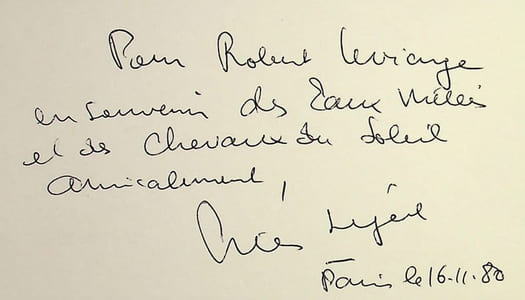 Pour Robert
en souvenir des Eaux Mêlées
et des Chevaux du Soleil
amicalement,
Paris le 16-11-80